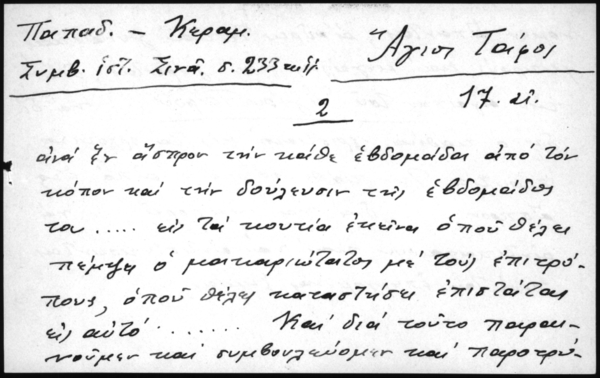 Παπαδ. – Κεραμ.
Συμβ. ἱστ. Σινᾶ. σ. 233
Ἅγιοι Τάφοι
17. αἰ.
2
ἀνά ἕν ἄσπρον τήν κάθε ἑβδομάδα ἀπό τόν
κόπον καί τήν δούλευσιν τῆς ἑβδομάδος
του ..... εἰς τά κουτία ἐκεῖνα ὁποῦ θέλει
πέμψει ὁ μακαριώτατος μέ τούς ἐπιτρό-
πους, ὁποῦ θέλει καταστήσει ἐπιστάτας
εἰς αὐτό ........ Καί διά τοῦτο παρακι-
νοῦμεν καί συμβουλεύομεν καί παροτρύ-